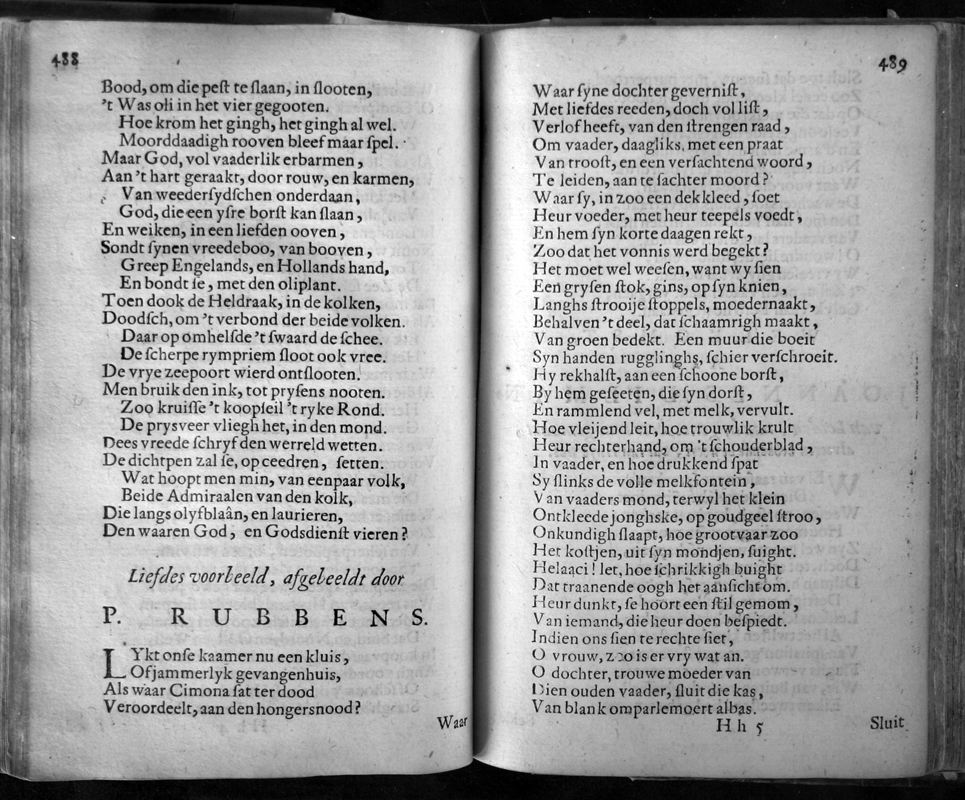 488
Bood, om die peſt te ſlaan, in ſlooten,
't Was oli in het vier gegooten.
Hoe krom het gingh, het gingh al wel.
Moorddaadigh rooven bleef maar ſpel.
Maar God, vol vaaderlik erbarmen,
Aan 't hart geraakt, door rouw, en karmen,
Van weederſydſchen onderdaan,
God, die een yſre borſt kan ſlaan,
En weiken, in een liefden ooven,
Sondt ſynen vreedeboo, van booven,
Greep Engelands, en Hollands hand,
En bondt ſe, met den oliplant.
Toen dook de Heldraak, in de kolken,
Doodſch, om 't verbond der beide volken.
Daar op omhelſde 't ſwaard de ſchee.
De ſcherpe rympriem ſloot ook vree.
De vrye zeepoort wierd ontſlooten.
Men bruik den ink, tot pryſens nooten.
Zoo kruiſſe 't koopſeil 't ryke Rond.
De prysveer vliegh het, in den mond.
Dees vreede ſchryf den werreld wetten.
De dichtpen zal ſe, op ceedren, ſetten.
Wat hoopt men min, van eenpaar volk,
Beide Admiraalen van den kolk,
Die langs olyfblaân, en laurieren,
Den waaren God, en Godsdienſt vieren?
Liefdes voorbeeld, afgebeeldt door
P. RUBBENS.
LYkt onſe kaamer nu een kluis,
Ofjammerlyk gevangenhuis,
Als waar Cimona ſat ter dood
Veroordeelt, aan den hongersnood?
Waar
489
Waar ſyne dochter geverniſt,
Met liefdes reeden, doch vol liſt,
Verlof heeft, van den ſtrengen raad,
Om vaader, daagliks, met een praat
Van trooſt, en een verſachtend woord,
Te leiden, aan te ſachter moord?
Waar ſy, in zoo een dekkleed, ſoet
Heur voeder, met heur teepels voedt,
En hem ſyn korte daagen rekt,
Zoo dat het vonnis werd begekt?
Het moet wel weeſen, want wy ſien
Een gryſen ſtok, gins, op ſyn knien,
Langhs ſtrooije ſtoppels, moedernaakt,
Behalven 't deel, dat ſchaamrigh maakt,
Van groen bedekt. Een muur die boeit
Syn handen rugglinghs, ſchier verſchroeit.
Hy rekhalſt, aan een ſchoone borſt,
By hem geſeeten, die ſyn dorſt,
En rammlend vel, met melk, vervult.
Hoe vleijend leit, hoe trouwlik krult
Heur rechterhand, om 't ſchouderblad,
In vaader, en hoe drukkend ſpat
Sy ſlinks de volle melkfontein,
Van vaaders mond, terwyl het klein
Ontkleede jonghske, op goudgeel ſtroo,
Onkundigh ſlaapt, hoe grootvaar zoo
Het koſtjen, uit ſyn mondjen, ſuight.
Helaaci! let, hoe ſchrikkigh buight
Dat traanende oogh het aanſicht om.
Heur dunkt, ſe hoort een ſtil gemom,
Van iemand, die heur doen beſpiedt.
Indien ons ſien te rechte ſiet,
O vrouw, zoo is er vry wat an.
O dochter, trouwe moeder van
Dien ouden vaader, ſluit die kas,
Van blank omparlemoert albas.
Hh 5
Sluit